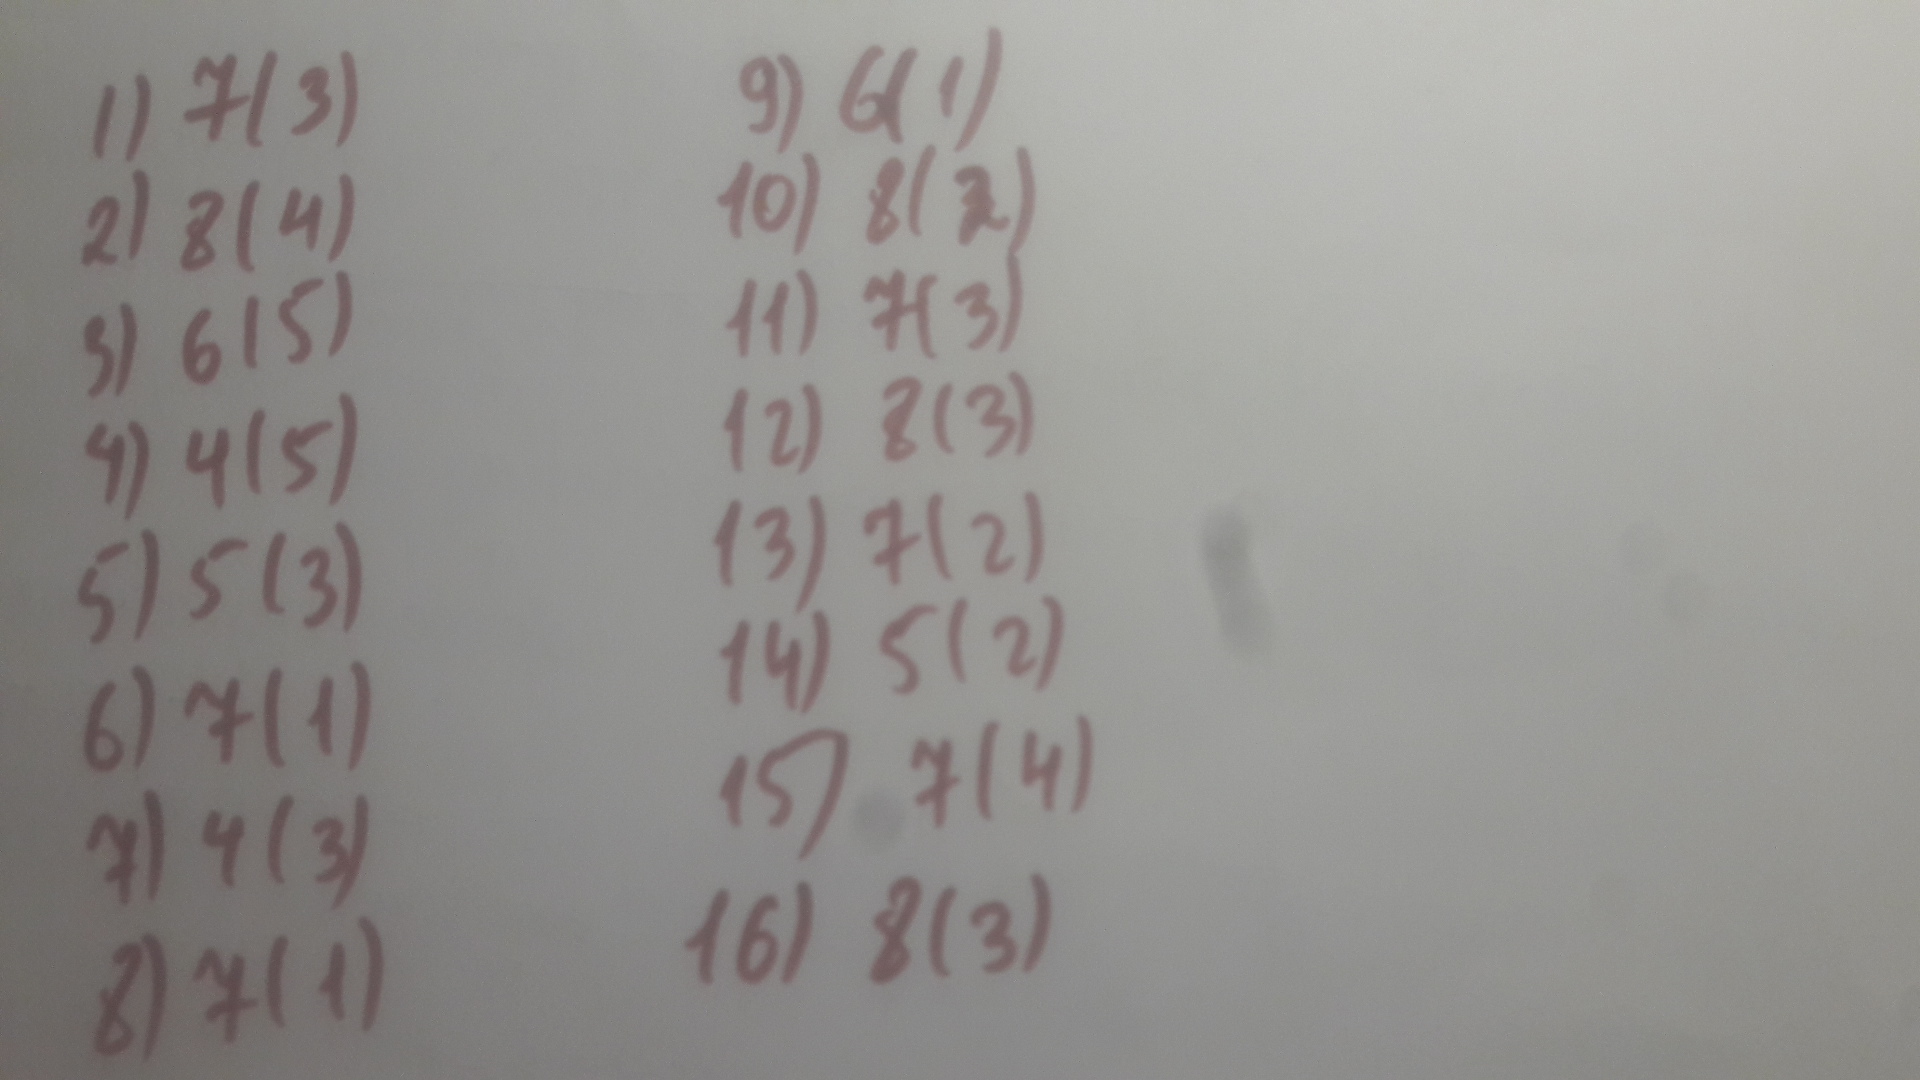 1) 7(3)
2) 8(4)
3) 6(5)
4) 4(5)
5) 5(3)
6) 7(1)
7) 4(3)
8) 7(1)
9) 6(1)
10) 8(2)
11) 7(3)
12) 8(3)
13) 7(2)
14) 5(2)
15) 7(4)
16) 8(3)